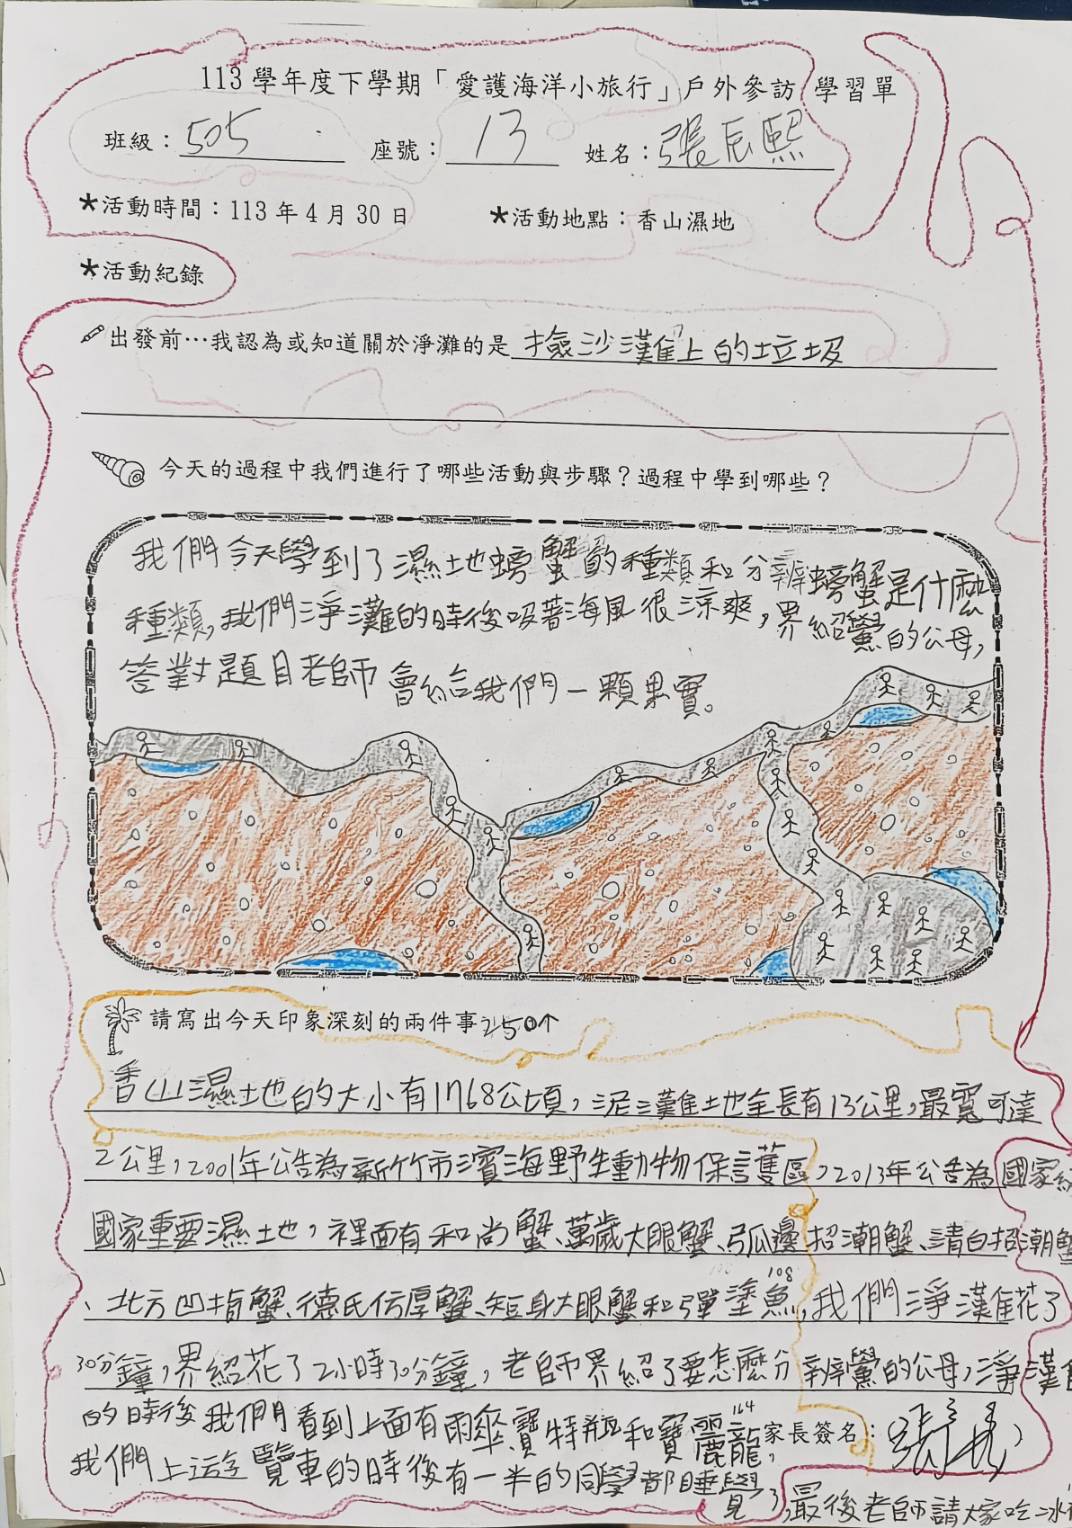 113 學年度下學期「愛護海洋小旅行」戶外參訪 學習單
班級：505 座號：13 姓名：張辰熙
*活動時間：113 年 4 月 30 日 *活動地點：香山濕地
*活動紀錄
出發前…我認為或知道關於淨灘的是 撿沙灘上的垃圾
今天的過程中我們進行了哪些活動與步驟？過程中學到哪些？
我們今天學到了濕地螃蟹的種類和分辨螃蟹是什麼
種類，我們淨灘的時後吸著海風很涼爽，界紹鱟的公母，
答對題目老師會給我們一顆果實。
請寫出今天印象深刻的兩件事 250个
香山濕地的大小有1768公頃，泥灘地全長有13公里，最寬可達
2公里，2001年公告為新竹市濱海野生動物保護區，2013年公告為國家級
國家重要濕地，裡面有和尚蟹、萬歲大眼蟹、弧邊招潮蟹、清白招潮蟹
、北方凹指蟹、德氏仿厚蟹、短身大眼蟹和彈塗魚，我們淨灘花了
108
30分鐘，界紹花了2小時30分鐘，老師界紹了要怎麼分辨鱟的公母，淨灘
的時後我們看到上面有雨傘、寶特瓶和寶麗龍，
164
家長簽名：
我們上遊覽車的時後有一半的同學都睡覺，最後老師請大家吃冰